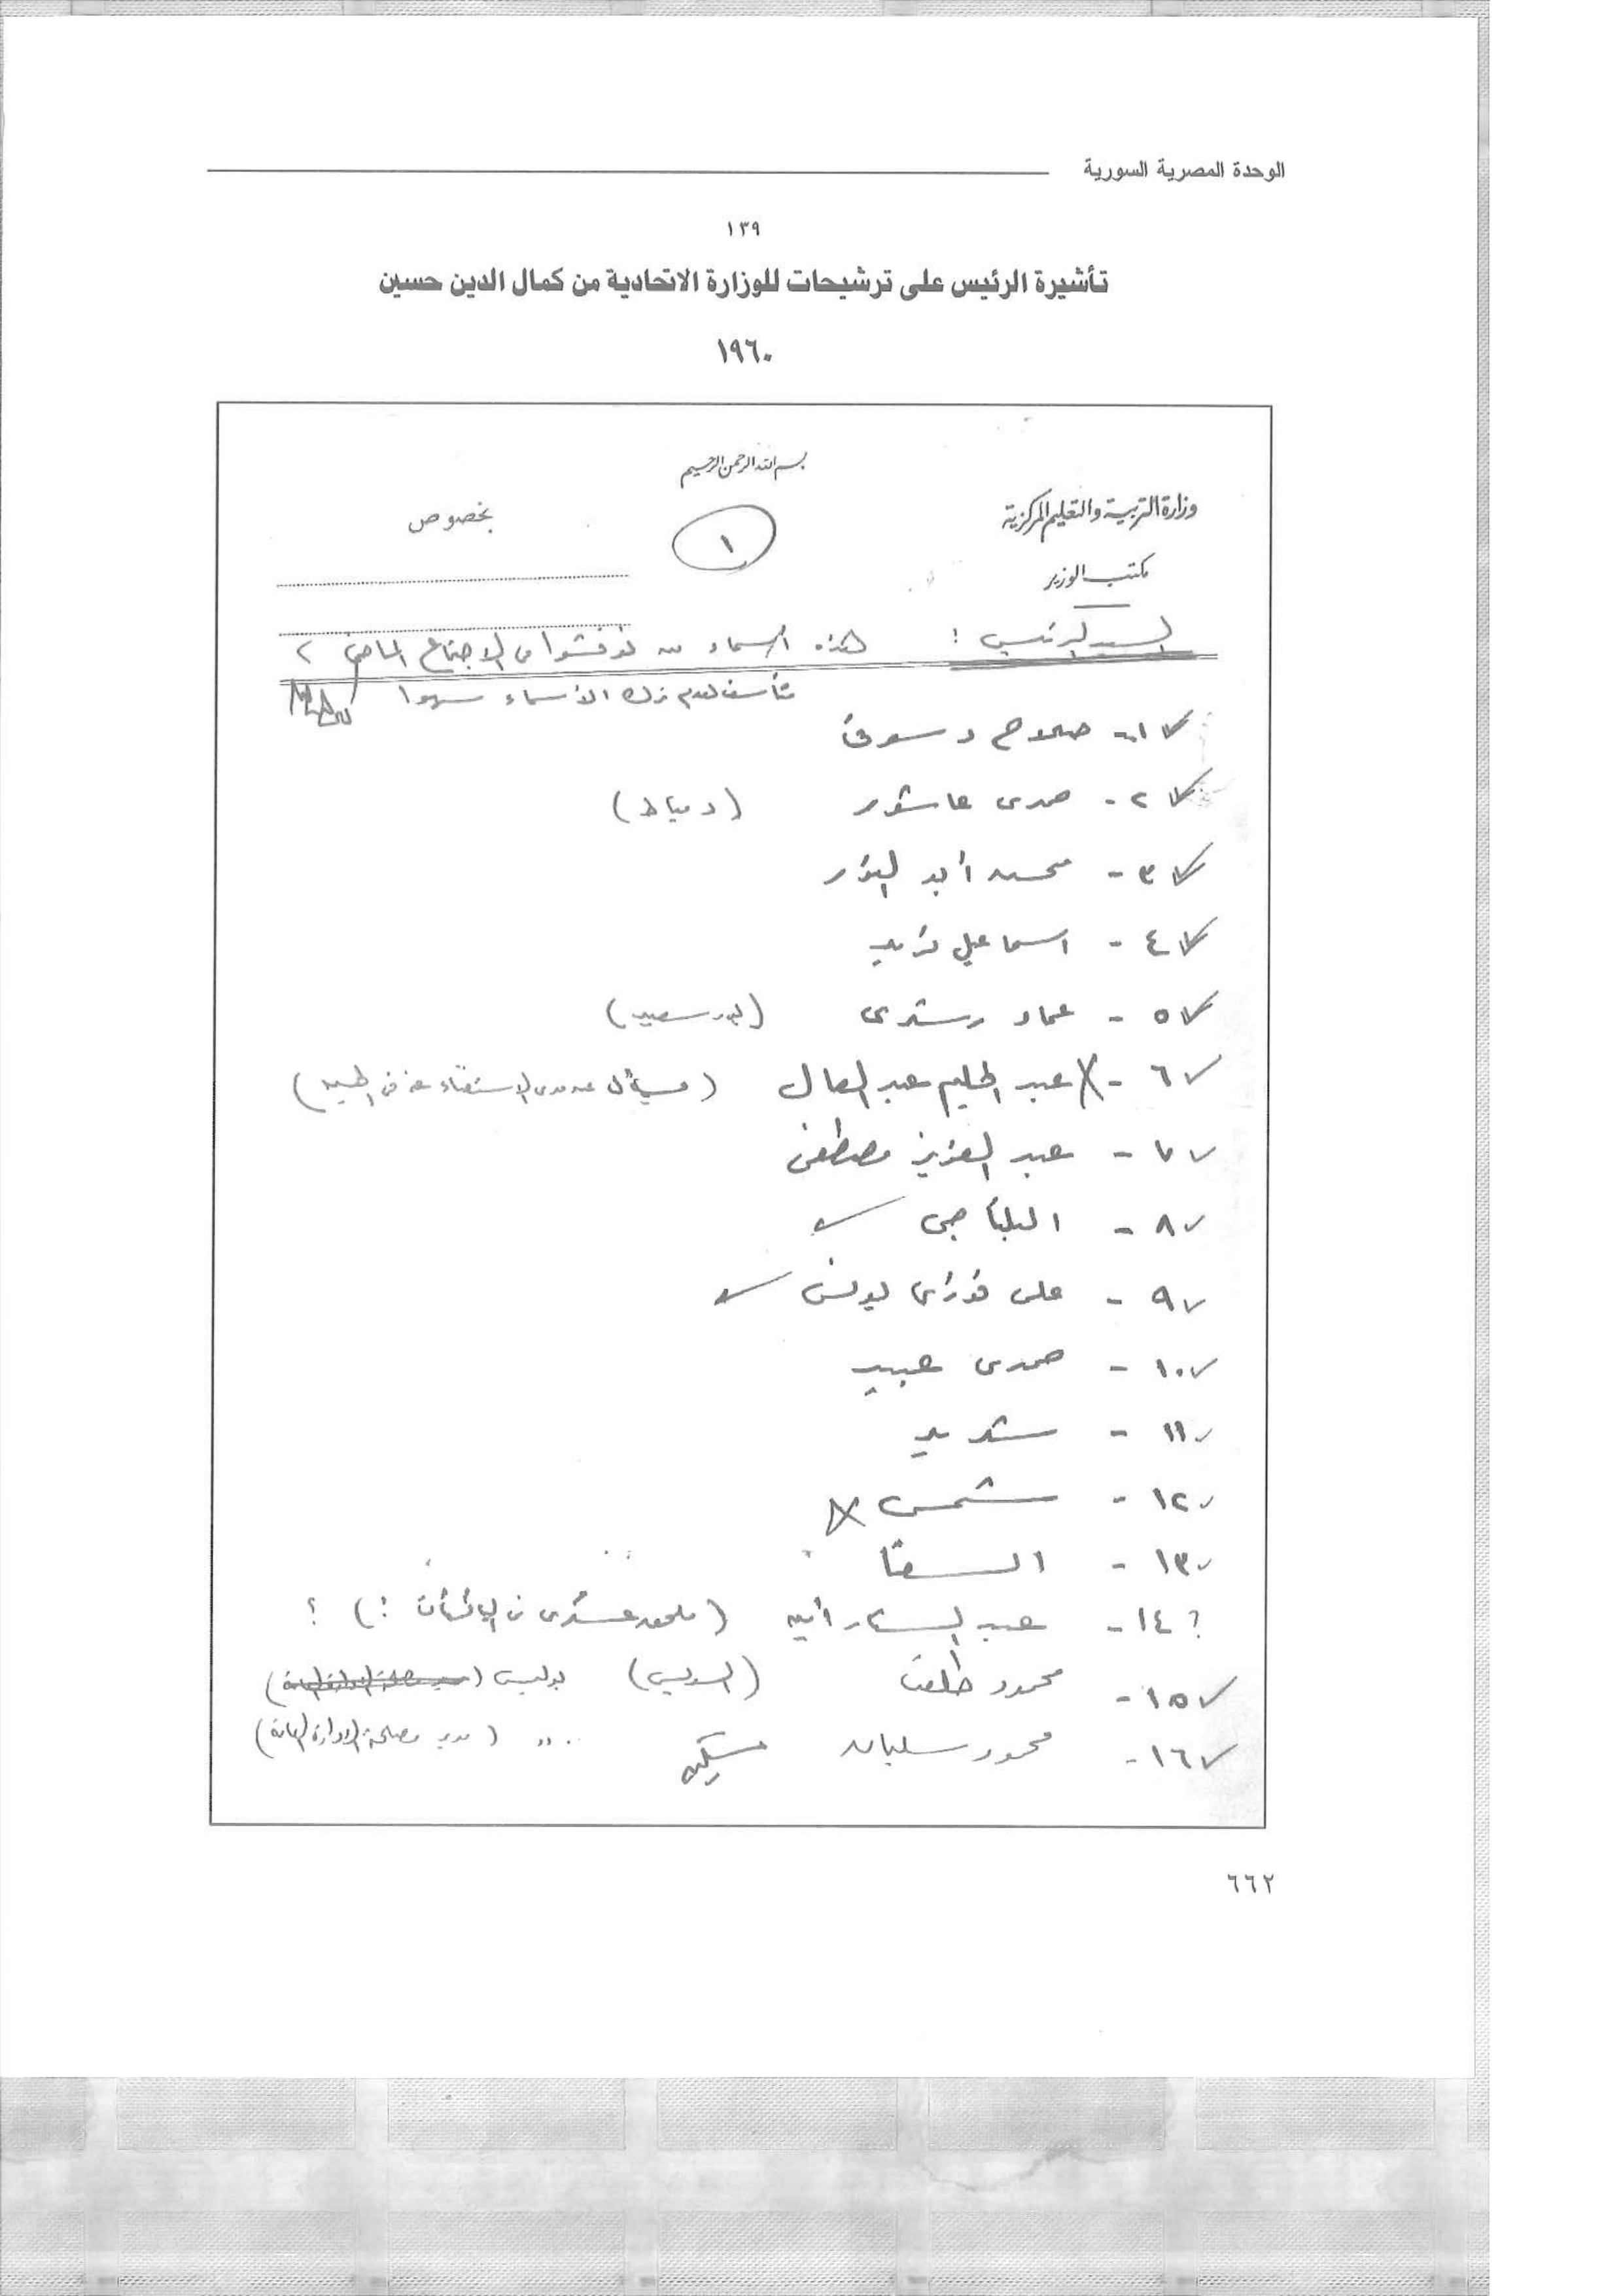 الوحدة المصرية السورية
١٣٩
تأشيرة الرئيس على ترشيحات للوزارة الاتحادية من كمال الدين حسين
١٩٦٠
بسم الله الرحمن الرحيم
وزارة التربية والتعليم المركزية
بخصوص
١
مكتب الوزير
السيد الرئيس : هذه أسماء من نوقشوا في الاجتماع الماضي
الأسماء سهوا
١ - صلاح دسوقى
٢ - حمدى عاشور (دمياط)
٣ - محمد أبو النور
٤ - اسماعيل فريد
٥ - عماد رشدى (بور سعيد)
٦ - عبد الحليم عبد العال (عن مدى الاستغناء عنه فى)
٧ - عبد العزيز مصطفى
٨ - البلتاجى
٩ - على فوزى يونس
١٠ - حمدى عبيد
١١ - شديد
١٢ - شمس
١٣ - السقا
؟ ١٤ - عبد الستار أمين (ملحق عسكرى فى الباكستان ؟) ؟
١٥ - محمود طلعت (السويس) بوليس
١٦ - محمود سليمان (مدير مصلحة الادارة العامة)
٦٦٢